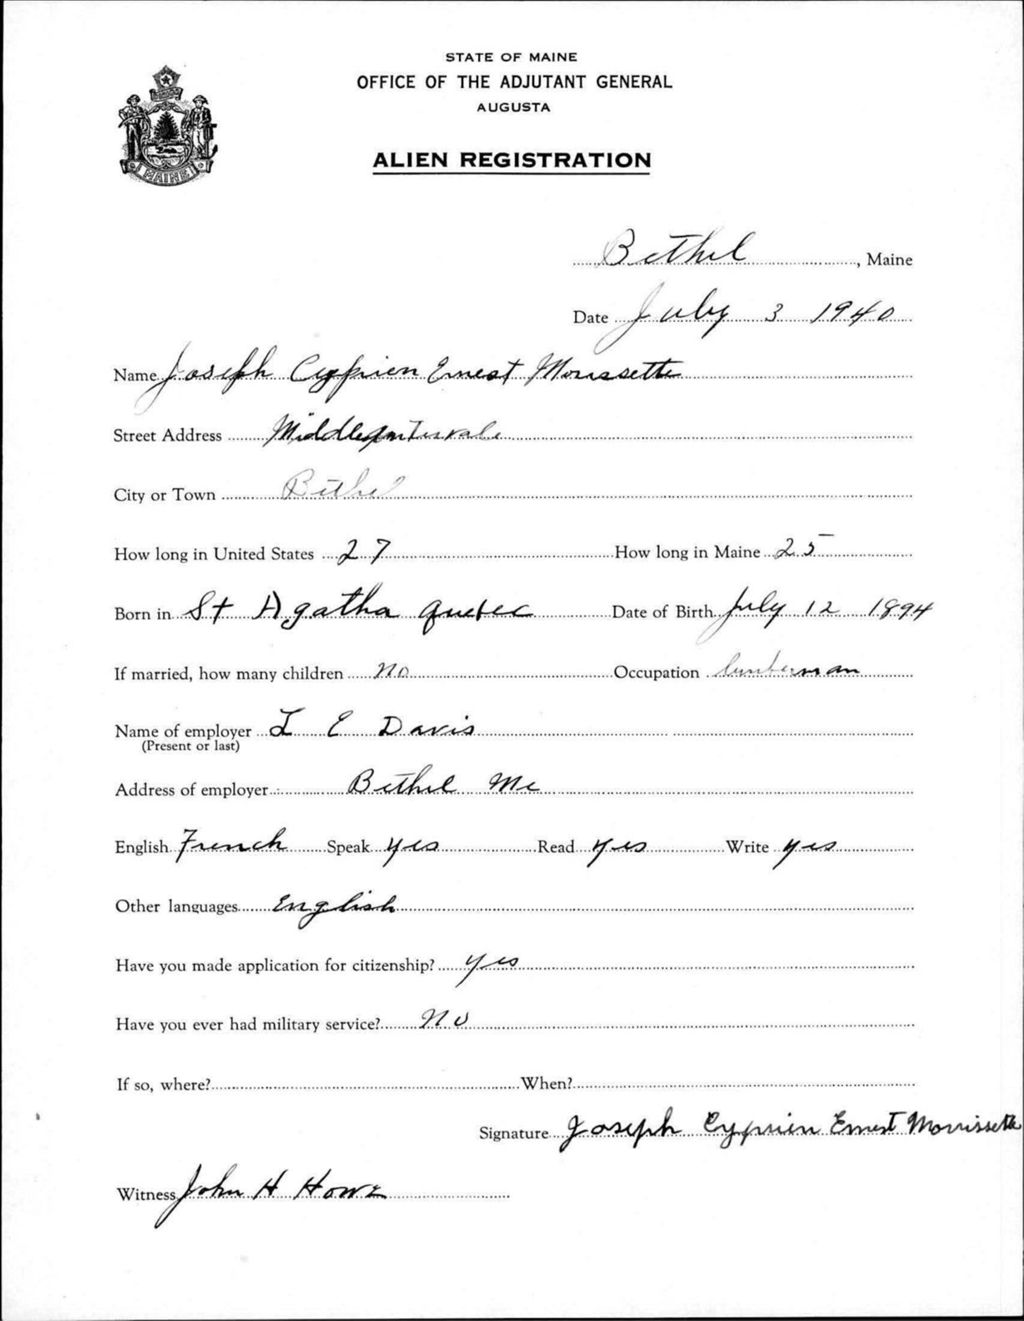 STATE OF MAINE
OFFICE OF THE ADJUTANT GENERAL
AUGUSTA
MAINE
ALIEN REGISTRATION
Bethel, Maine
Date July 3 1940
Name Joseph Cyprien Ernest Morissette
Street Address Middle Intervale
City or Town Bethel
How long in United States 27 How long in Maine 25
Born in St Agatha Quebec Date of Birth July 12 1894
If married, how many children No Occupation lumberman
Name of employer L E Davis
(Present or last)
Address of employer Bethel Me
English French Speak yes Read yes Write yes
Other languages English
Have you made application for citizenship? yes
Have you ever had military service? No
If so, where? When?
Signature Joseph Cyprien Ernest Morrissette
Witness John H Howe